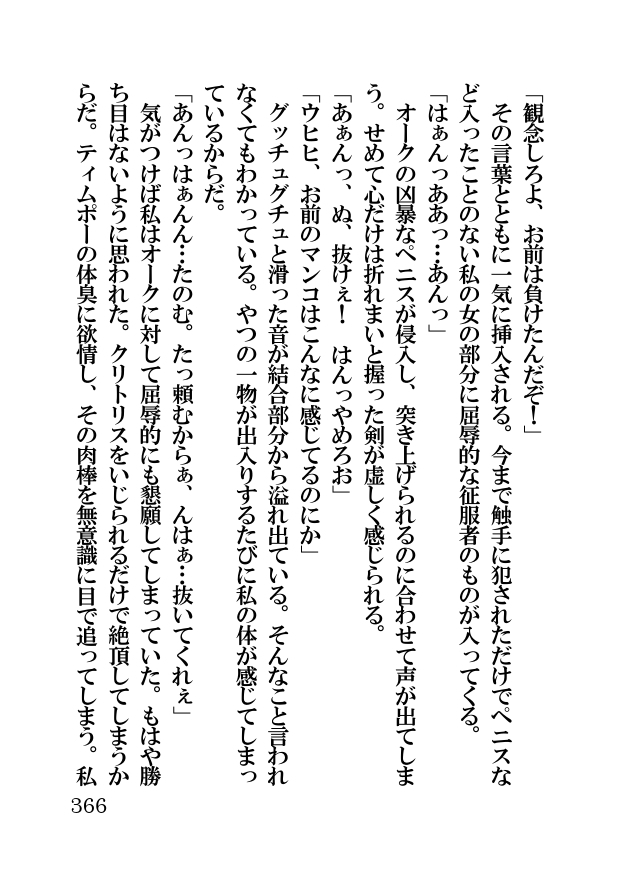 「観念しろよ、お前は負けたんだぞ！」
　その言葉とともに一気に挿入される。今まで触手に犯されただけでペニスな
ど入ったことのない私の女の部分に屈辱的な征服者のものが入ってくる。
「はぁんっああっ…あんっ」
　オークの凶暴なペニスが侵入し、突き上げられるのに合わせて声が出てしま
う。せめて心だけは折れまいと握った剣が虚しく感じられる。
「あぁんっ、ぬ、抜けぇ！　はんっやめろお」
「ウヒヒ、お前のマンコはこんなに感じてるのにか」
　グッチュグチュと滑った音が結合部分から溢れ出ている。そんなこと言われ
なくてもわかっている。やつの一物が出入りするたびに私の体が感じてしまっ
ているからだ。
「あんっはぁんん…たのむ。たっ頼むからぁ、んはぁ…抜いてくれぇ」
　気がつけば私はオークに対して屈辱的にも懇願してしまっていた。もはや勝
ち目はないように思われた。クリトリスをいじられるだけで絶頂してしまうか
らだ。ティムポーの体臭に欲情し、その肉棒を無意識に目で追ってしまう。私
366